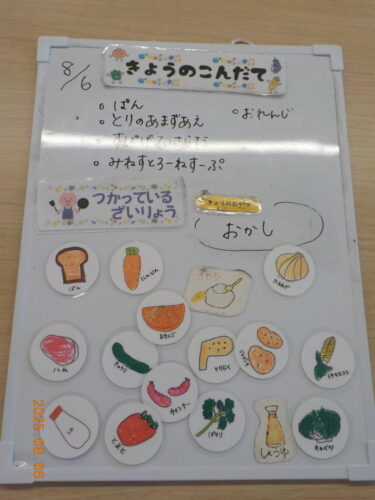 きょうのこんだて
8/6
ぱん
とりのあまずあえ
すぱげてぃさらだ
みねすとろーねすーぷ
おれんじ
つかっている
ざいりょう
きょうのおやつ
おかし
ぱん
にんじん
さとう
たまねぎ
おれんじ
ハム
きゅうり
とりにく
じゃがいも
トウモロコシ
ウインナー
しお
とまと
ぱせり
しょうゆ
キャベツ